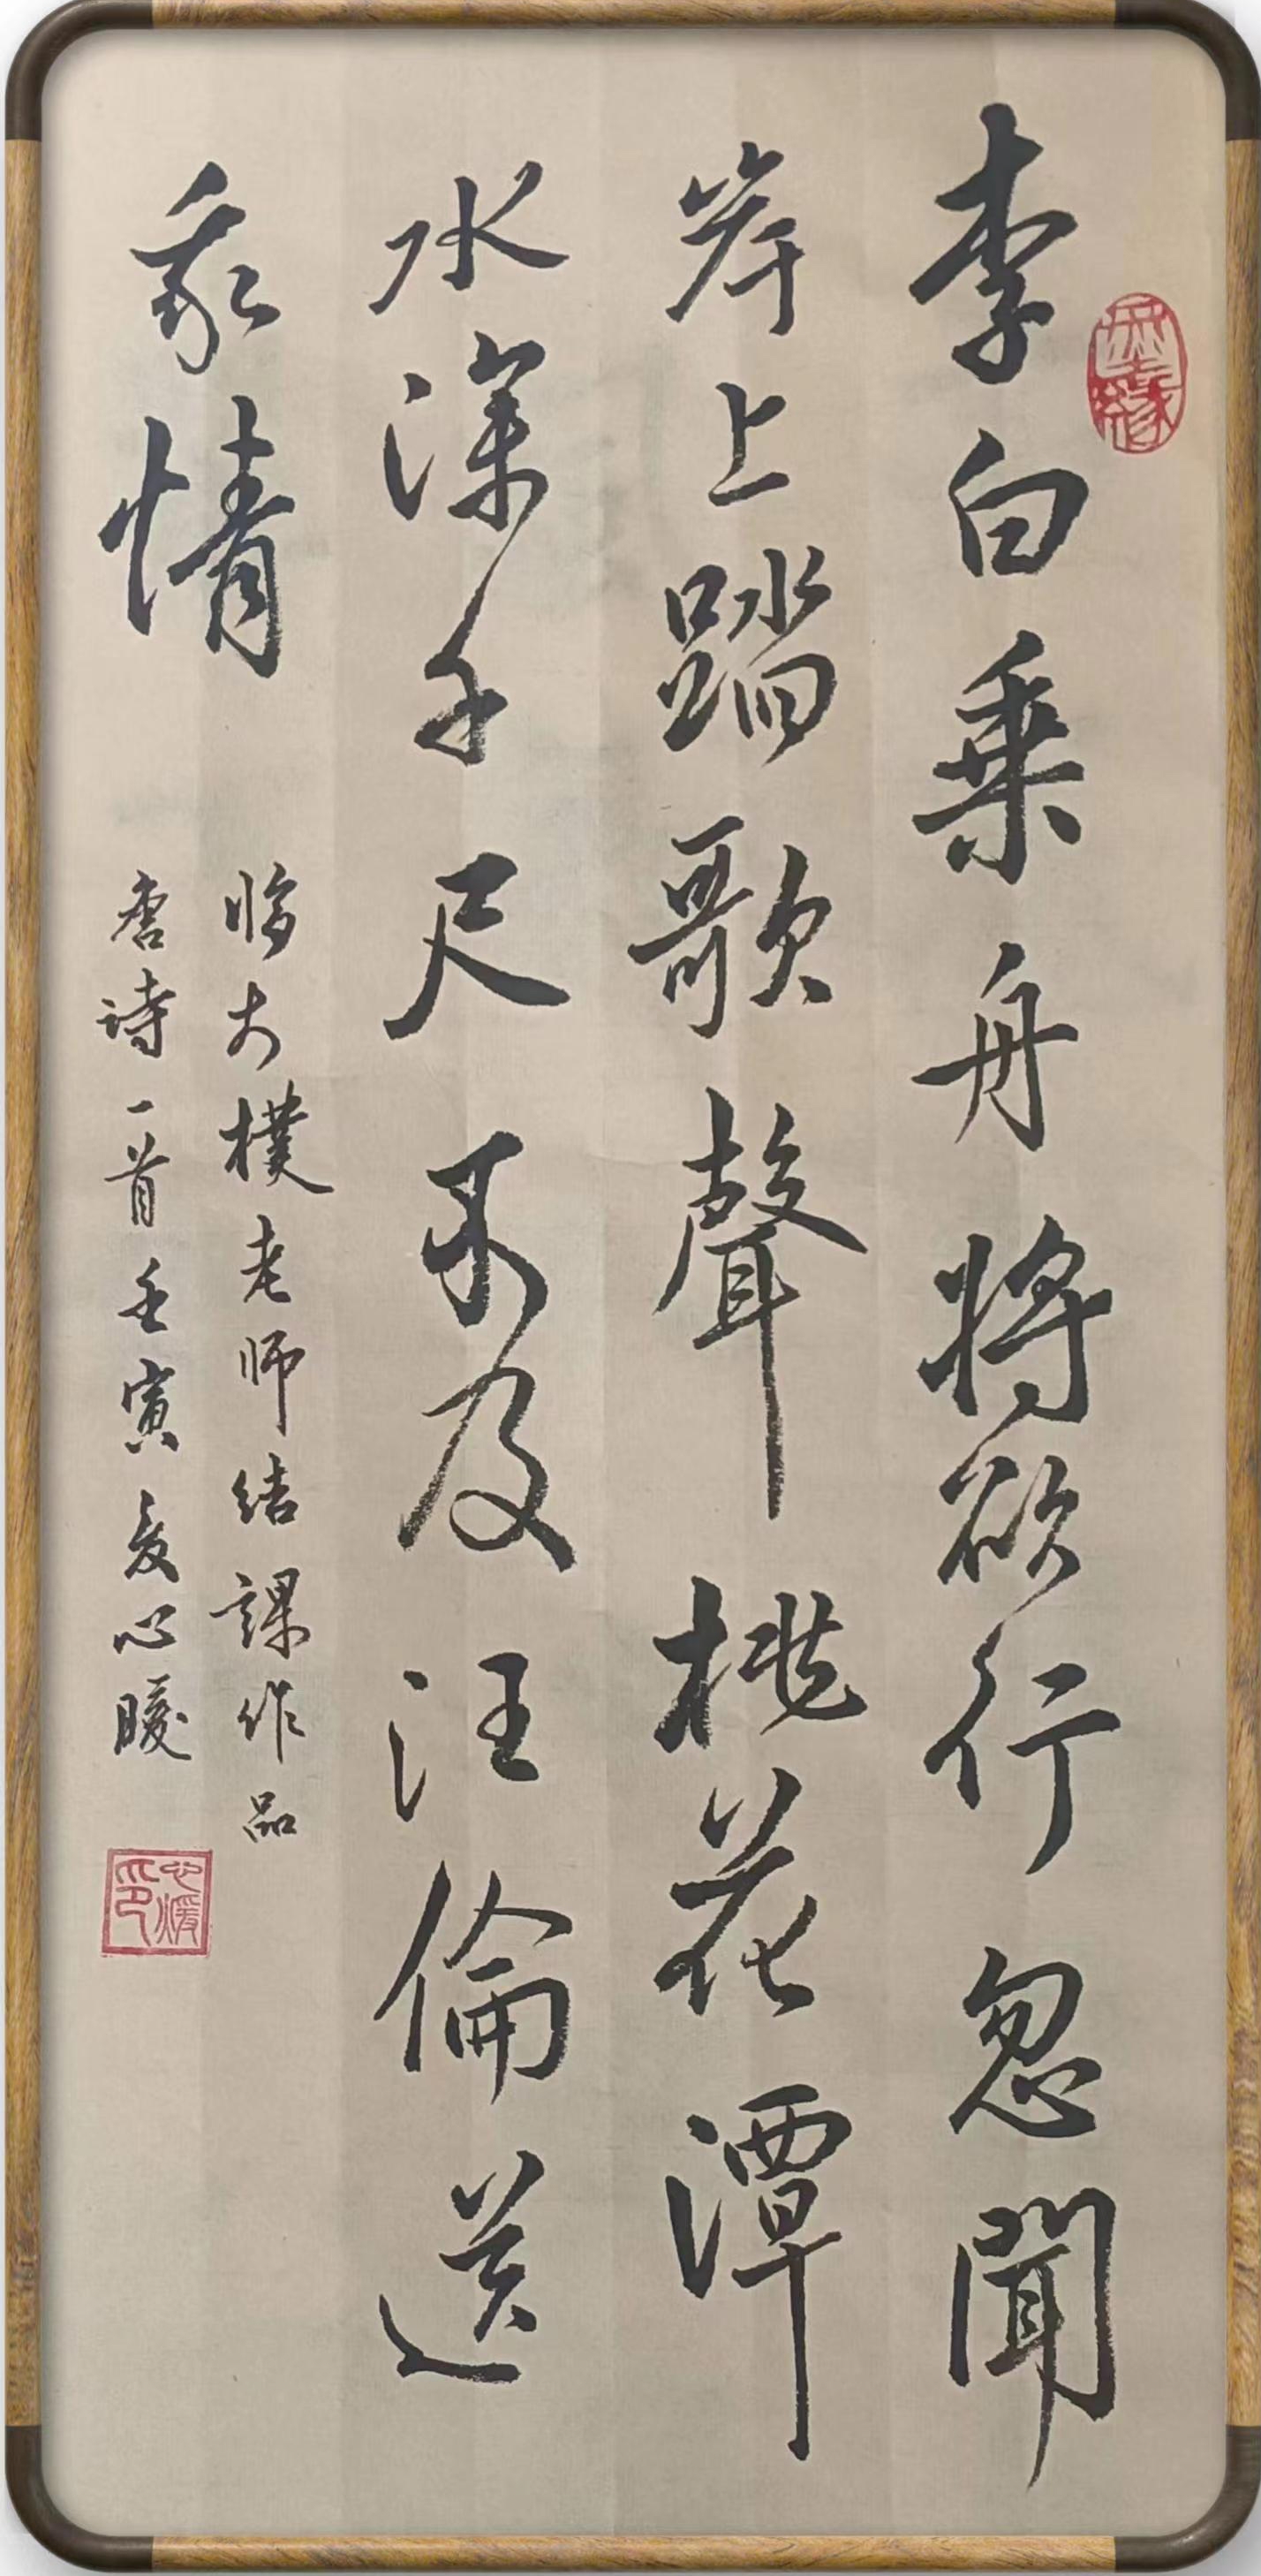 李白乘舟將欲行忽聞
岸上踏歌聲桃花潭
水深千尺不及汪倫送
我情
臨大樸老师结課作品
唐诗一首壬寅夏心暖
心暖印